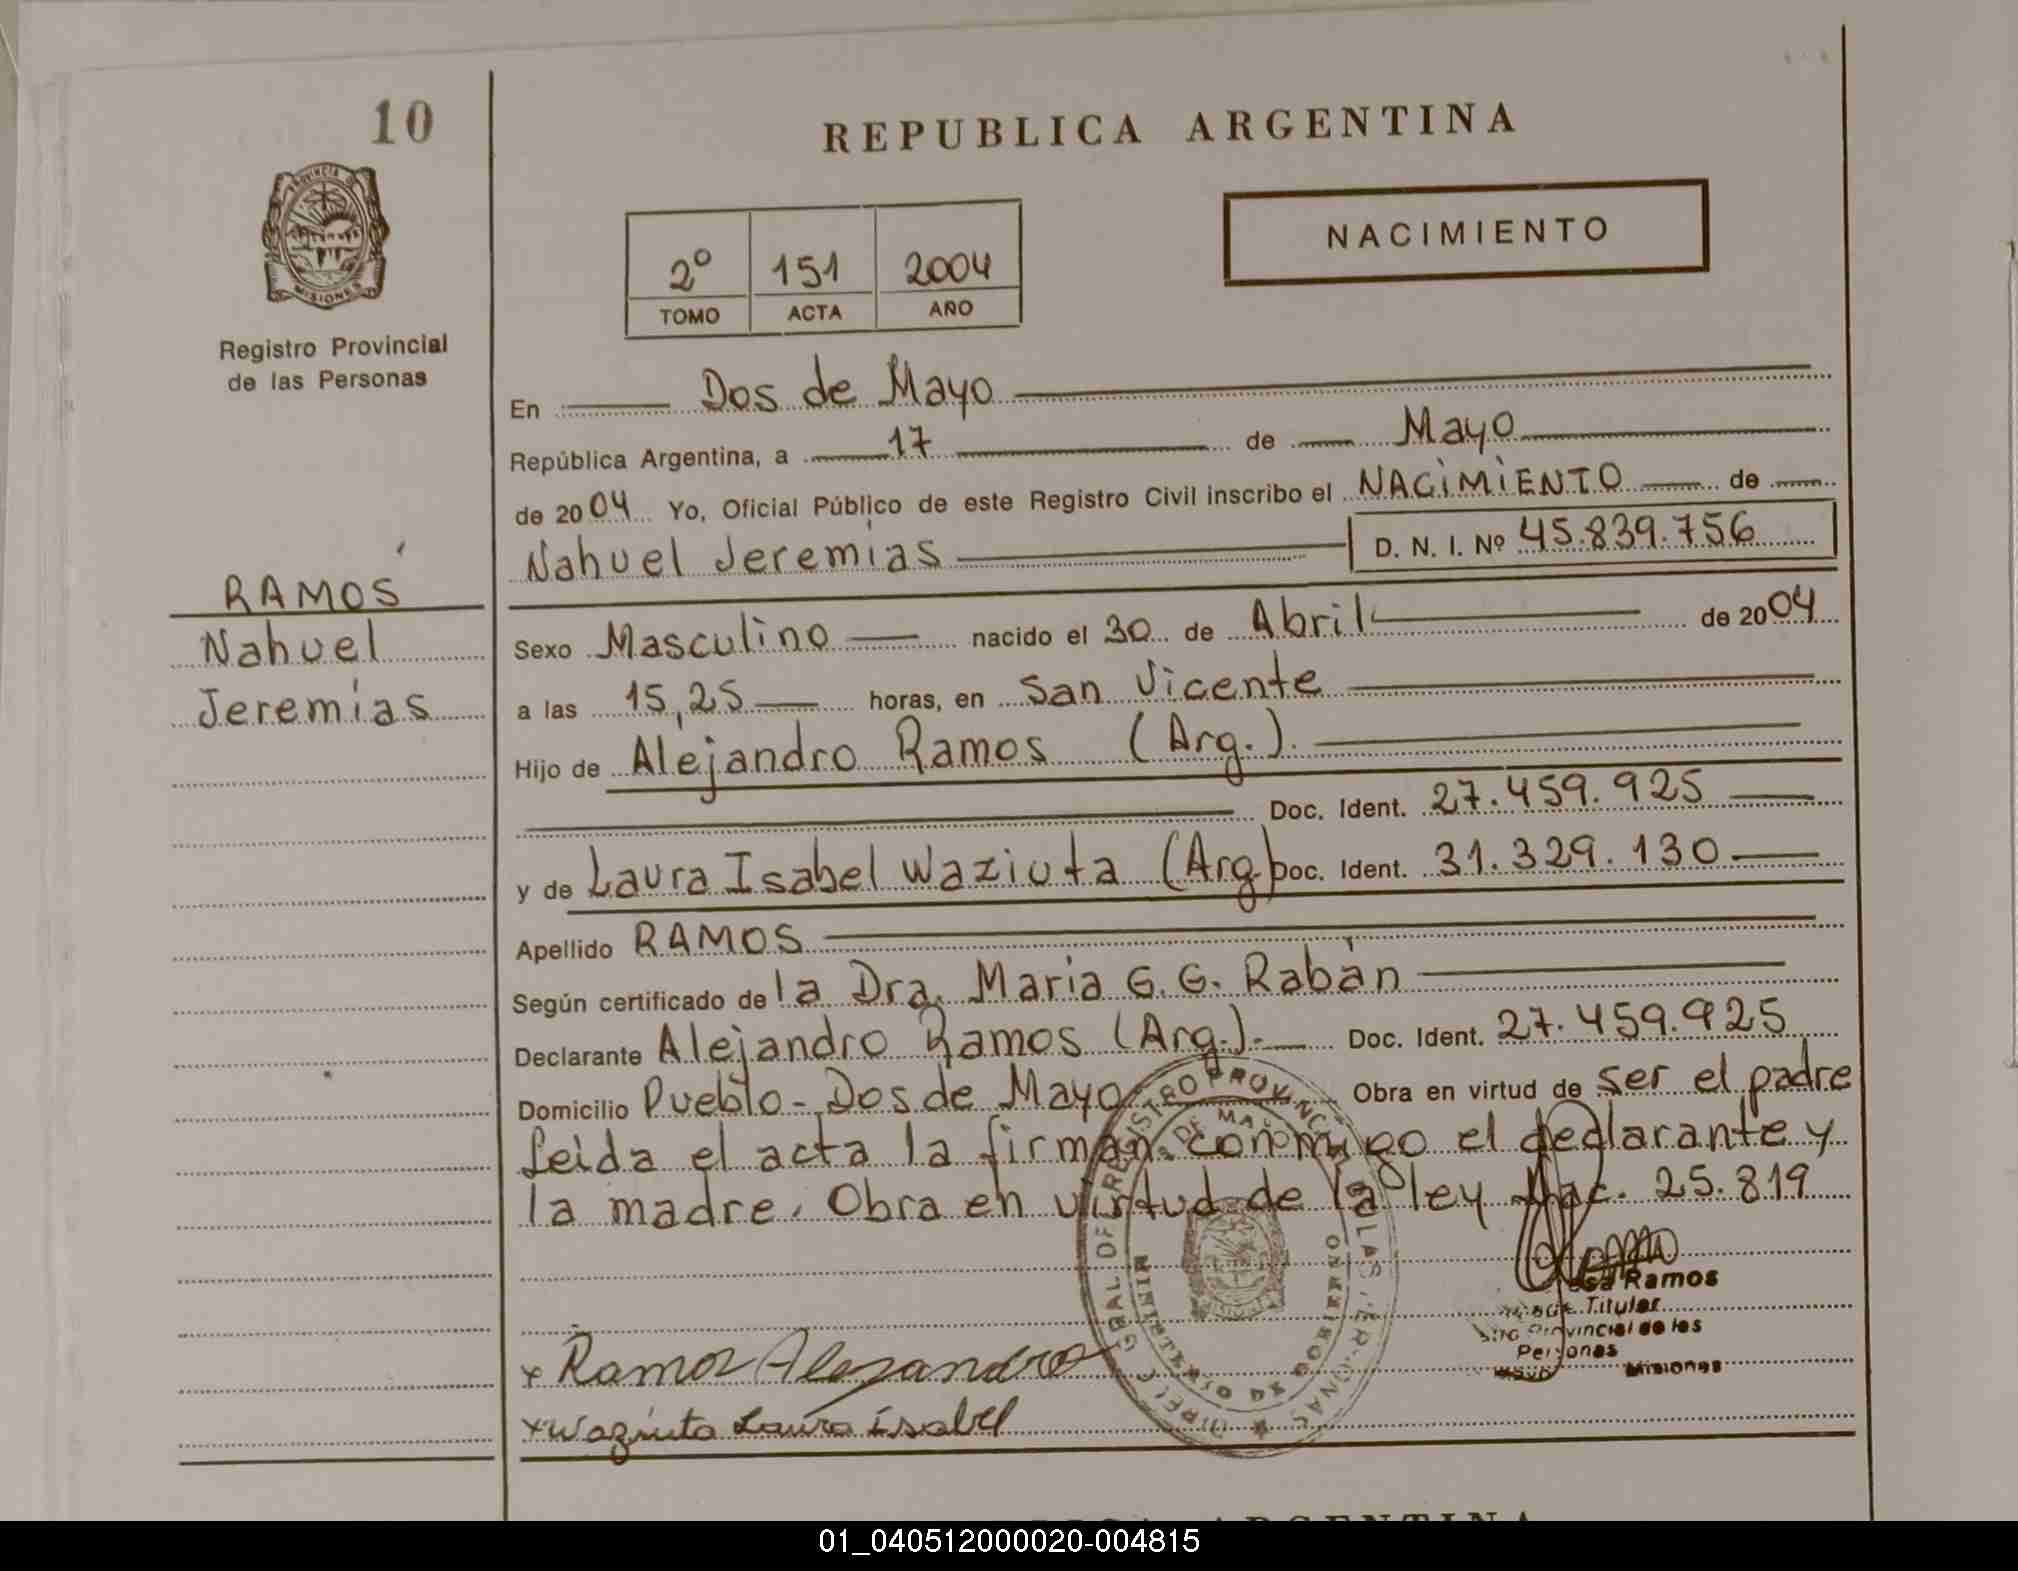 10
REPUBLICA ARGENTINA
PROVINCIA DE
MISIONES
NACIMIENTO
2º 151 2004
TOMO ACTA AÑO
Registro Provincial
de las Personas
En Dos de Mayo
República Argentina, a 17 de Mayo
de 2004 Yo, Oficial Público de este Registro Civil inscribo el NACIMIENTO de
Nahuel Jeremías D. N. I. Nº 45.839.756
RAMOS
Nahuel
Jeremías
Sexo Masculino nacido el 30 de Abril de 2004
a las 15,25 horas, en San Vicente
Hijo de Alejandro Ramos (Arg.).
Doc. Ident. 27.459.925
y de Laura Isabel Waziuta (Arg.) Doc. Ident. 31.329.130
Apellido RAMOS
Según certificado de la Dra. Maria G. G. Rabán
Declarante Alejandro Ramos (Arg.). Doc. Ident. 27.459.925
Domicilio Pueblo - Dos de Mayo Obra en virtud de ser el padre
Leída el acta la firman conmigo el declarante y
la madre. Obra en virtud de la ley Nac. 25.819
Ramos
Titular
Provincial de las
Personas
Misiones
x Ramos Alejandro
x Waziuta Laura Isabel
ARGENTINA
01_040512000020-004815